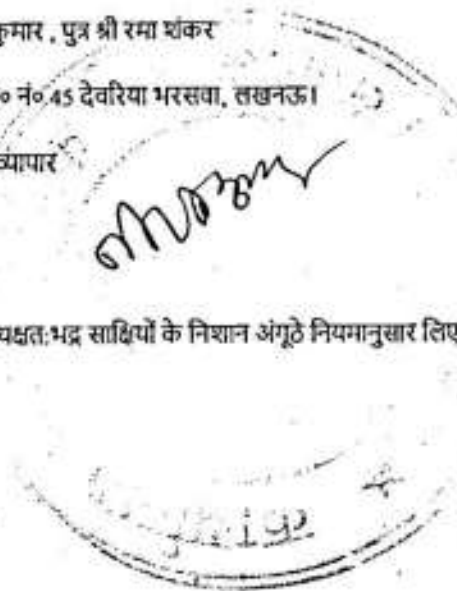 कुमार , पुत्र श्री रमा शंकर
० नं० 45 देवरिया भरसवा, लखनऊ।
व्यापार
यक्षत:भद्र साक्षियों के निशान अंगूठे नियमानुसार लिए